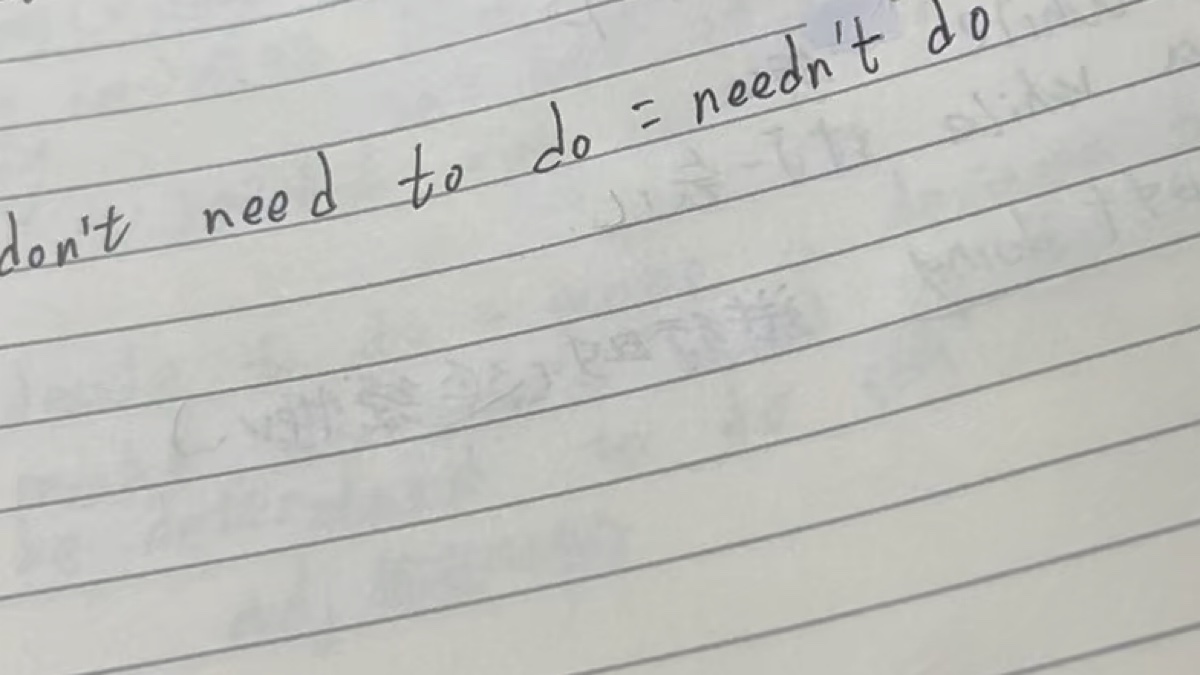 don't need to do = needn't do